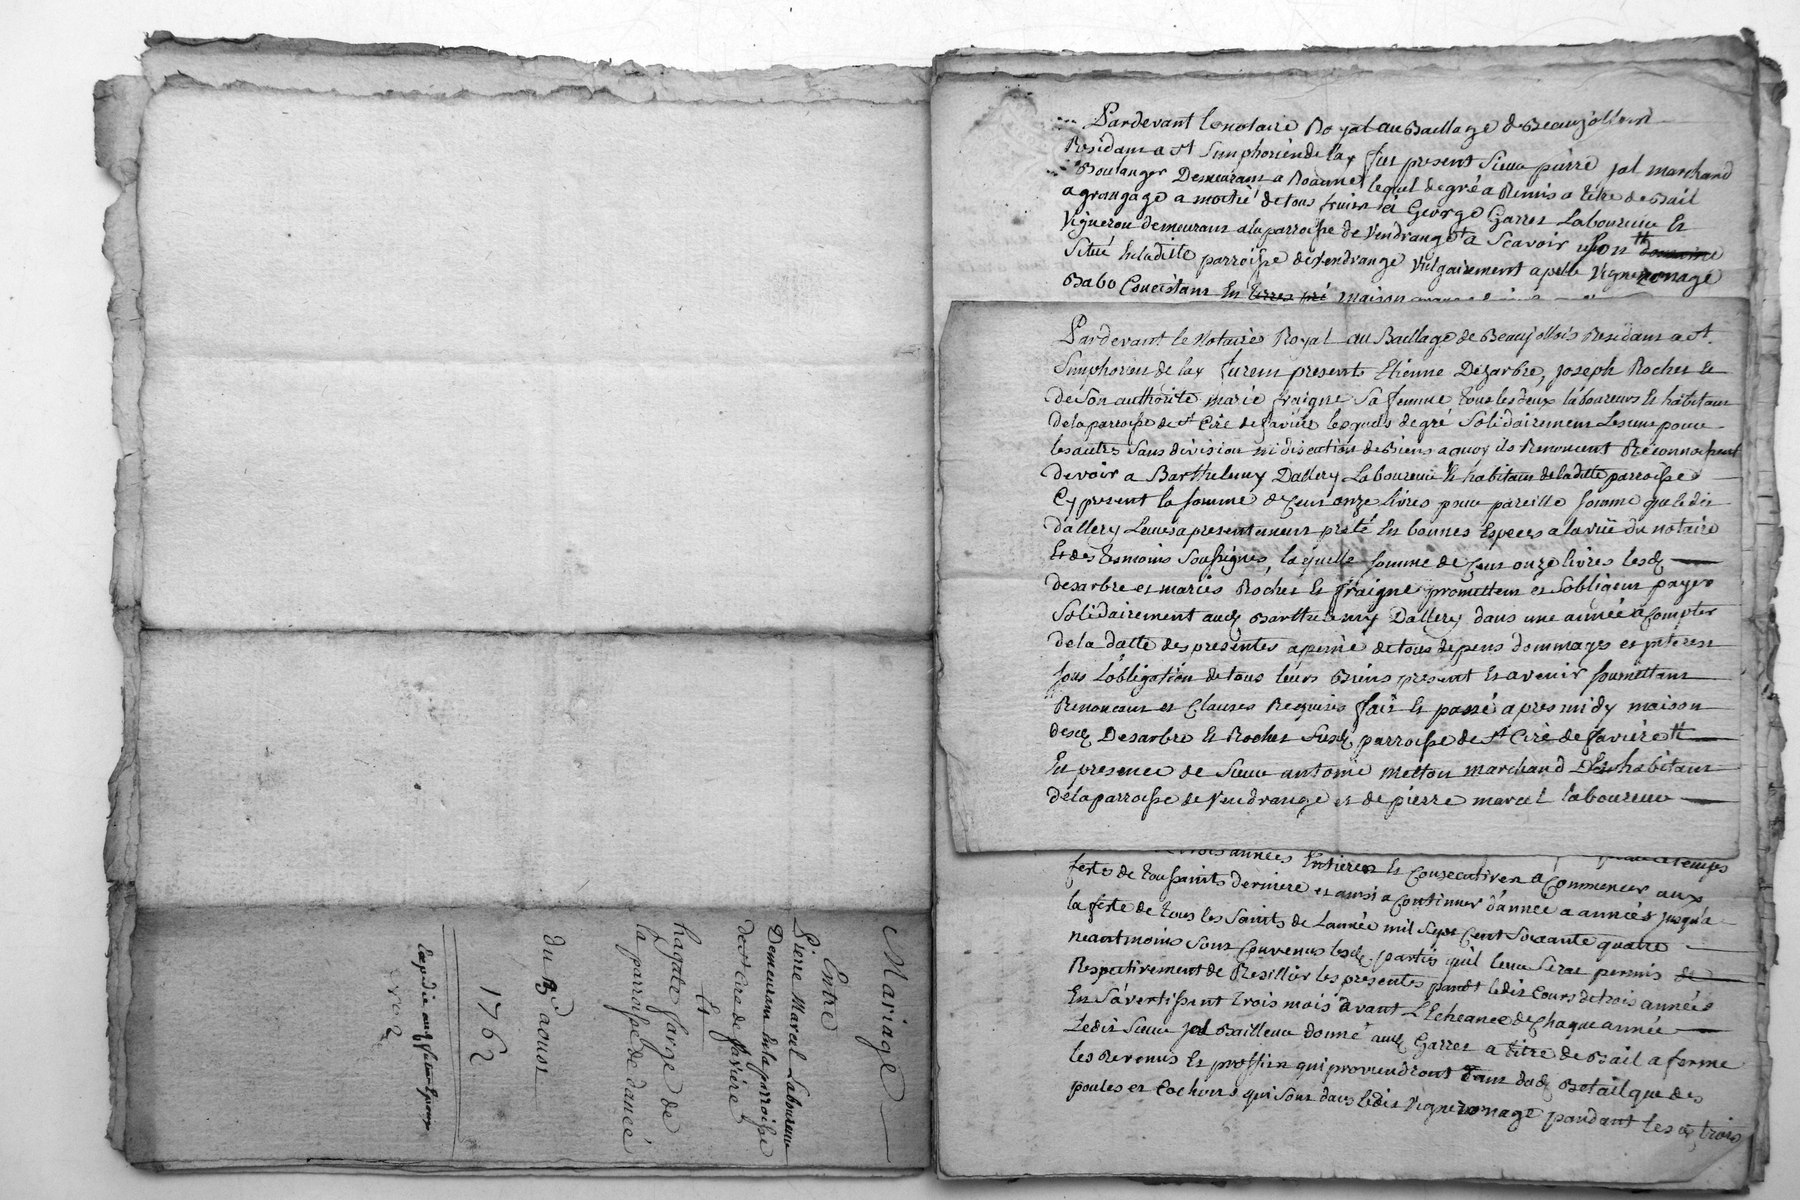 Mariage
Entre
Pierre Marcel Laboureur
Demeurant En la parroisse
de St Cire de favière
Et
hagate farge de
la parroisse de dancé
du aoust
1762
Expedié aux futur Epoux
Pardevant le notaire Royal au Baillage de Beaujollois
Residant a St Simphorien de lay fut present Sieur pierre jal marchand
Boulanger Demeurant a Roanne lequel de gré a Remis a titre de Bail
a grangage a moitié de tous fruits a George Garret Laboureur Et
Vigneron demeurant a la parroisse de Vendrange Scavoir un Son domaine
Situé En ladite parroisse de Vendrange Vulgairement apellé Vigneronage
Babo Concistant En terres pré maison
Pardevant le Notaire Royal au Baillage de Beaujollois Residant a St
Simphorien de lay furent presents Etienne Dezarbre, joseph Rochet Et
de Son authorité marie fraigne Sa femme tous les deux laboureurs Et habitant
de la parroisse de St Ciré de favière lesquels de gré Solidairement Les une pour
les autres Sans division ni discution de Biens a quoy ils Renoncent Reconnoissent
devoir a Barthelemy Dallery Laboureur Et habitant de ladite parroisse
Cy present la somme de Cent onze livres pour pareille somme que ledit
Dallery Leur a presentement preté En bonnes Especes a la vüe du notaire
Et des temoins Soussignes, laquelle somme de Cent onze livres lesd
desarbre et mariés Rochet Et fraigne promettent et Sobligent payer
Solidairement aud Barthelemy Dallery dans une année a Compter
de la datte des presentes a peine de tous depens dommages et interest
sous Lobligation de tous leurs Biens present Et avenir soumettant
Renoncant et Clauses Requises fait Et passé apres midy maison
desd Desarbre Et Rochet Susd parroisse de St Ciré de favière
En presence de Sieur antoine metton marchand habitant
de la parroisse de Vendrange et de pierre marcel laboureur
trois années Entieres Et Consecutives a Commencer aux
feste de toussaints derniere et ainsi a Continuer d'année a années jusqu'a
la feste de tous les Saints de Lannée mil Sept Cent Soixante quatre
neantmoins Sont Convenus lesd partis quil leur Serat permis
Respectivement de Resillier les presentes pandt ledit Cours de trois années
En S'avertissant trois mois avant L'Echeance de Chaque année
Ledit Sieur jal Bailleur donne aud Garret a titre de Bail a ferme
les Revenus Et proffits qui proviendront tant dud Betail que des
poules et Cochons qui Sont dans ledit Vigneronage pandant les trois